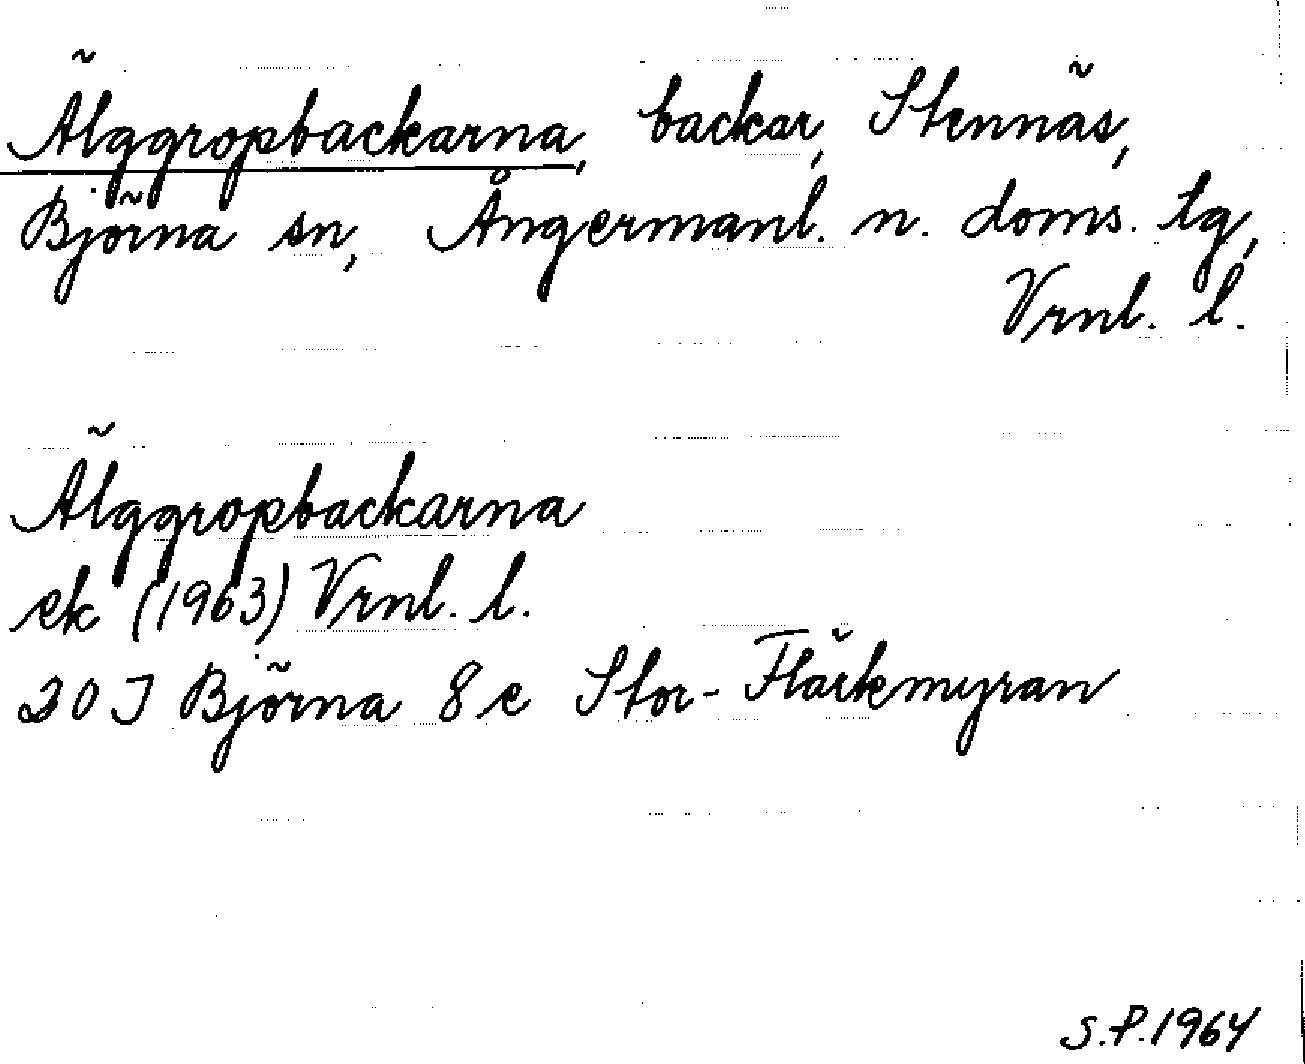 Älggropbackarna, backar, Stennäs,
Björna sn, Ångermanl. n. doms. tg,
Vrnl. l.
Älggropbackarna
ek (1963) Vrnl. l.
20 J Björna 8 e Stor-Flärkmyran
S.P. 1964